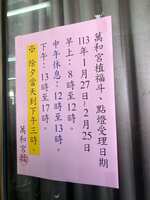 萬和宮植福斗、點燈受理日期
113年1月27日~2月25日
早上：8時至12時。
中午休息：12時至13時。
下午：13時至17時。
※除夕當天到下午三時。
萬和宮